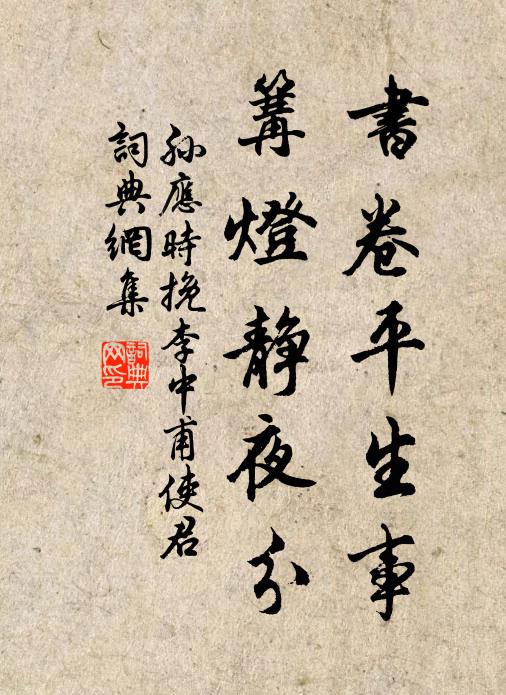 書卷平生事
篝燈静夜分
孙應時挽李中甫使君
詞典網集
詞典网印